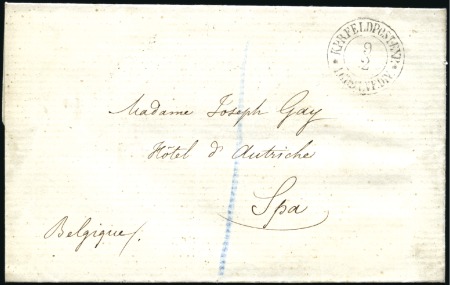 9
2
Madame Joseph Gay
Hôtel d'Autriche
Spa
Belgique